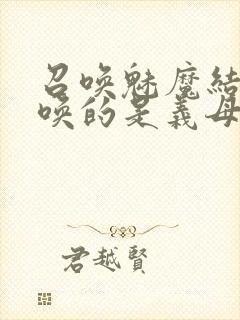 召唤魅魔结
唤的是義母
君越賢